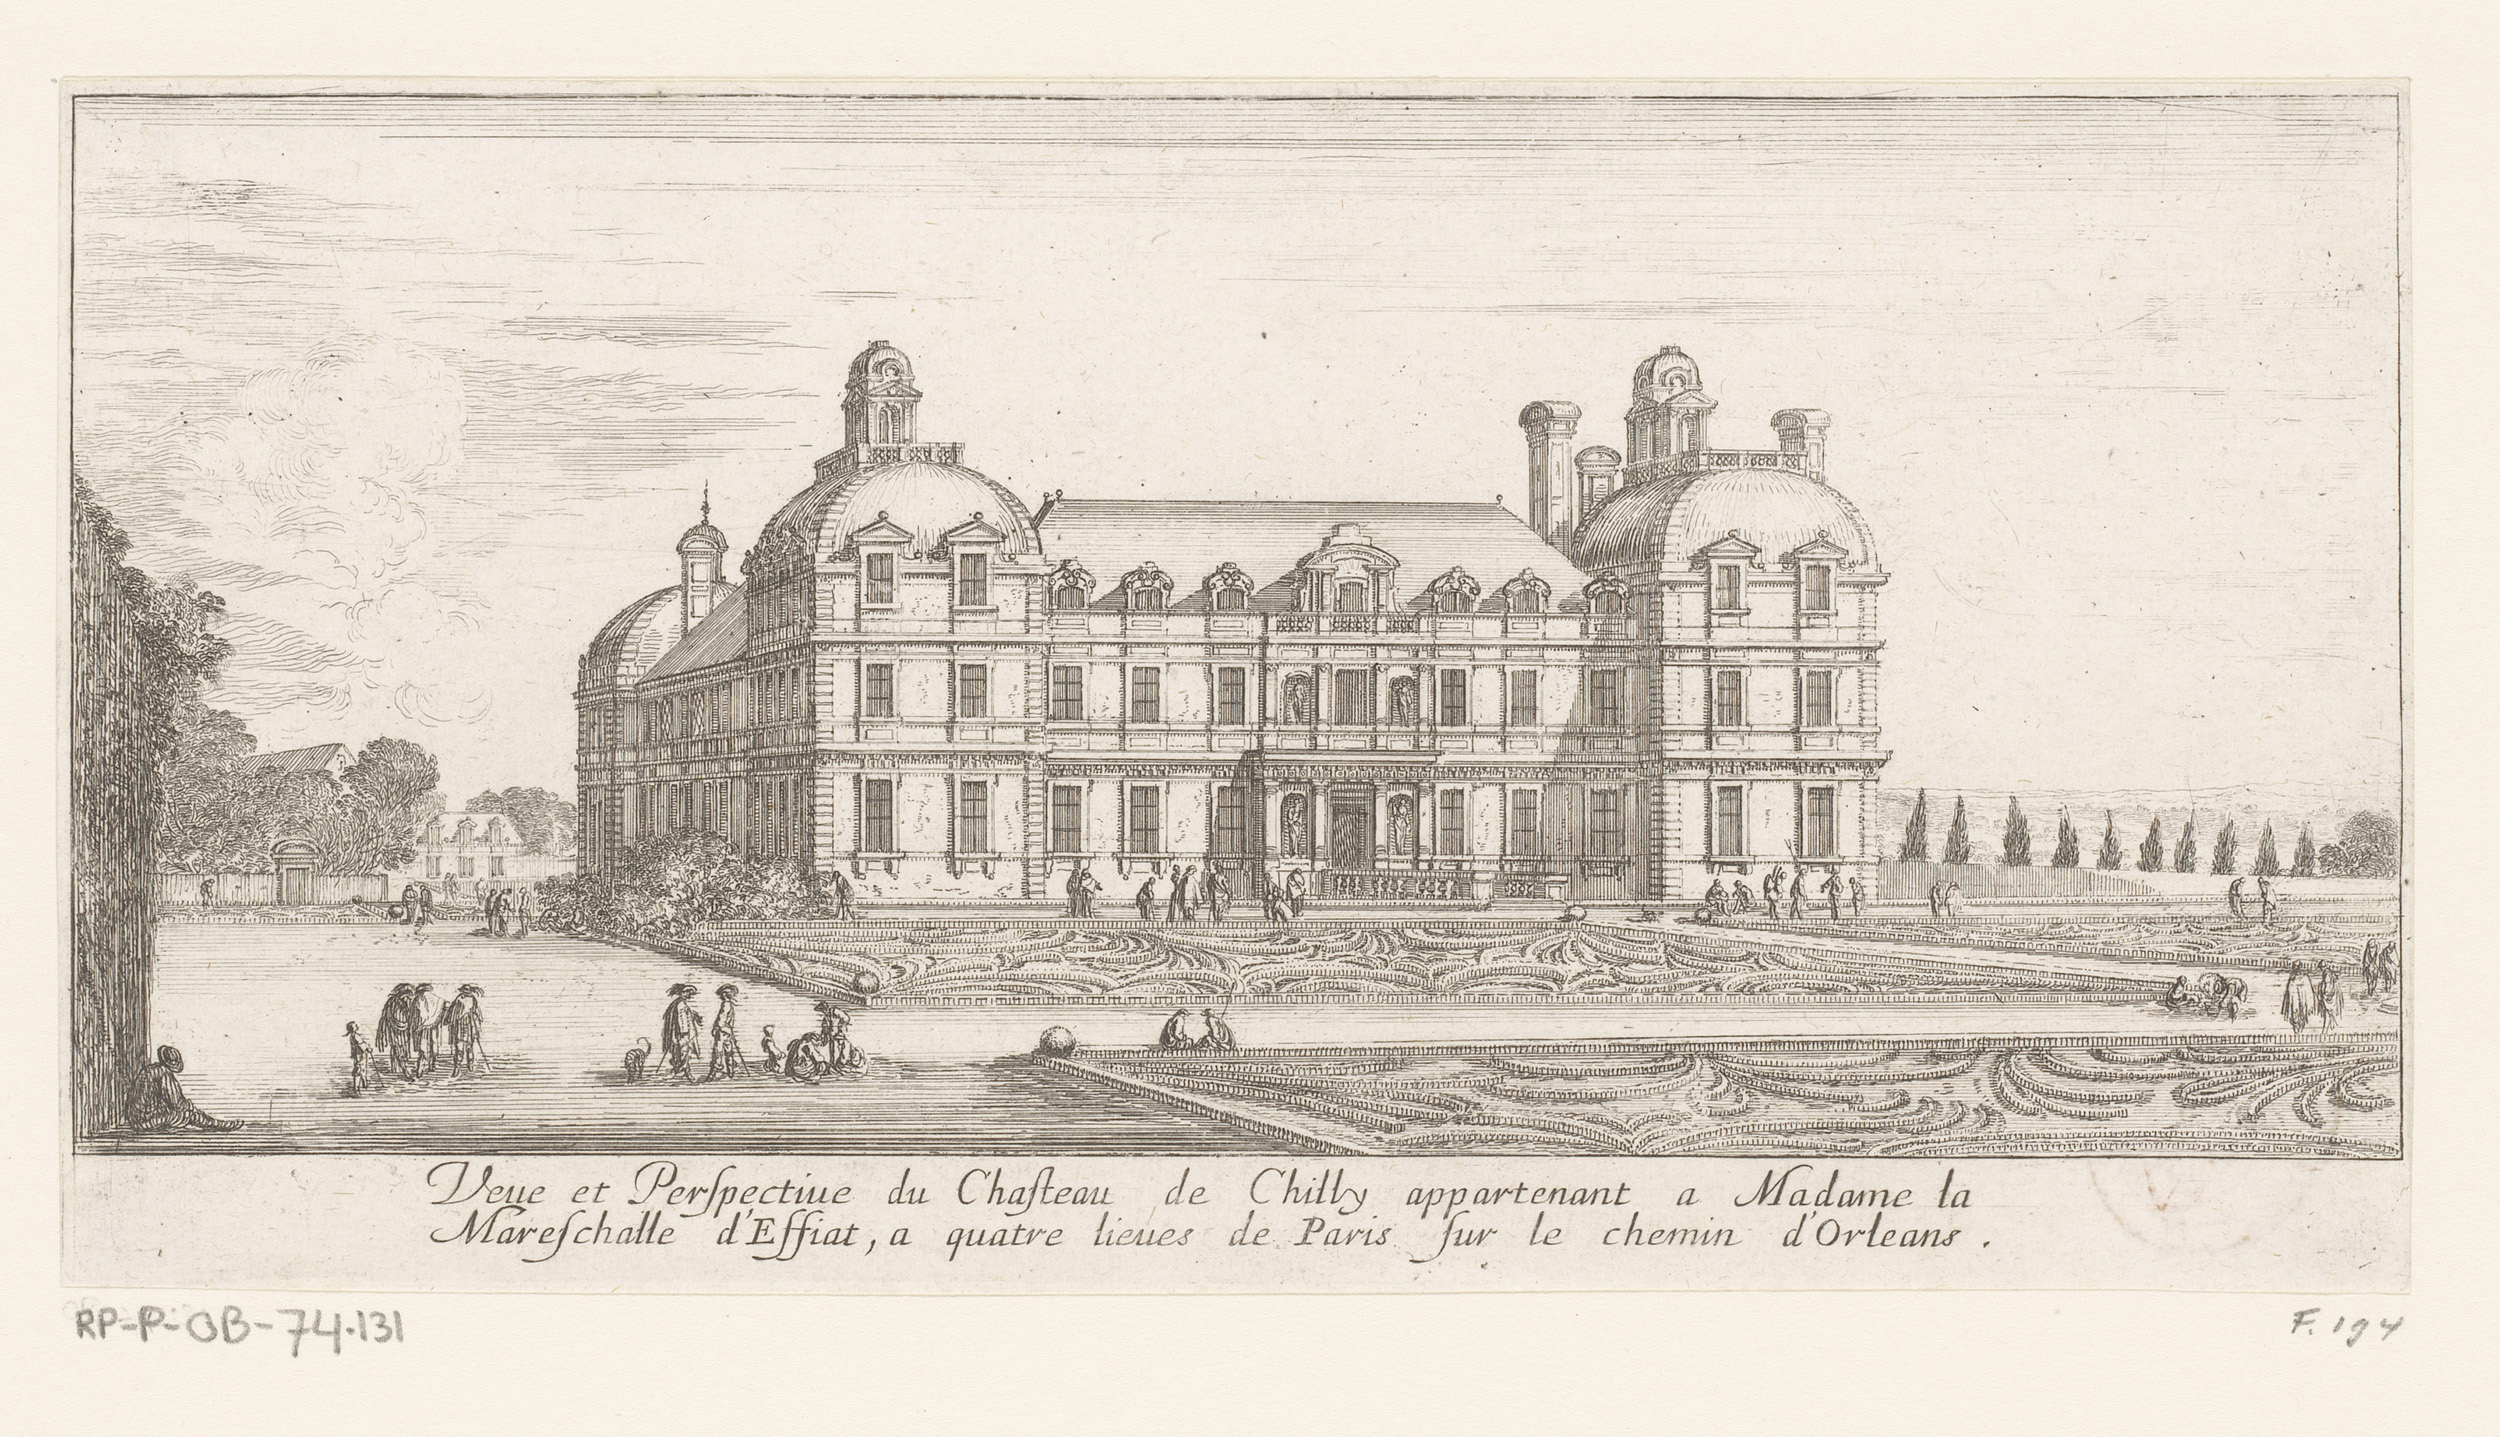 Veue et Perſpectiue du Chaſteau de Chilly appartenant a Madame la
Mareſchalle d'Effiat, a quatre lieues de Paris ſur le chemin d'Orleans.
RP-P-OB-74.131
F. 194